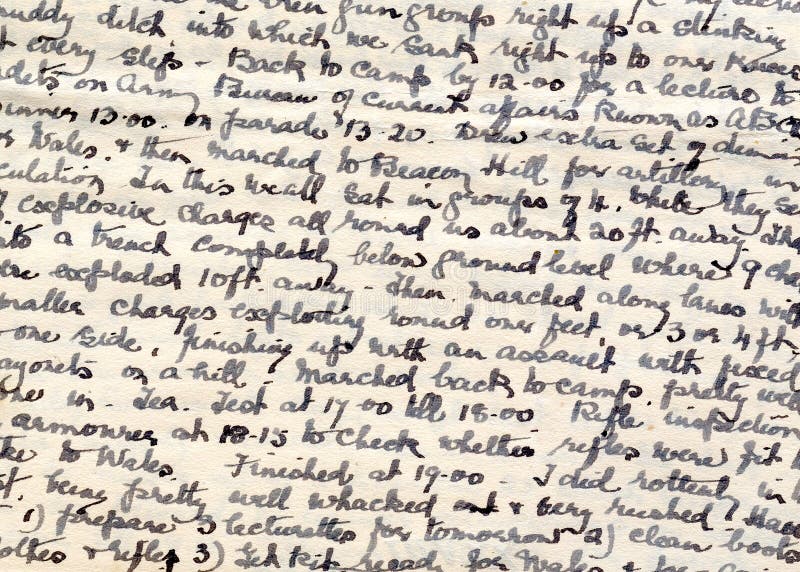 gun groups right up a stinking
muddy ditch into which we sank right up to our knees
at every step - Back to camp by 12.00 for a lecture to
cadets on Army Bureau of current affairs known as ABC
Dinner 13.00. on parade 13.20. Drew extra set of
Wales. & then marched to Beacon Hill for artillery
In this we all sat in groups of 4. while they se
explosive charges all round us about 20 ft. away.
into a trench completely below ground level where 9 cha
were exploded 10ft. away - Then marched along lanes with
smaller charges exploding round our feet, or 3 or 4 ft.
one side, finishing up with an assault with fixed
bayonets on a hill. Marched back to camp. pretty
in - Tea. Test at 17.00 till 18-00 Rifle inspection
armourer at 18-15 to check whether rifles were fit
to Wales Finished at 19.00 - I did rottenly in
being pretty well whacked & very rushed!
1) prepare 3 lecturettes for tomorrow 2) clean boots
& rifles 3) Get kit ready for Wales